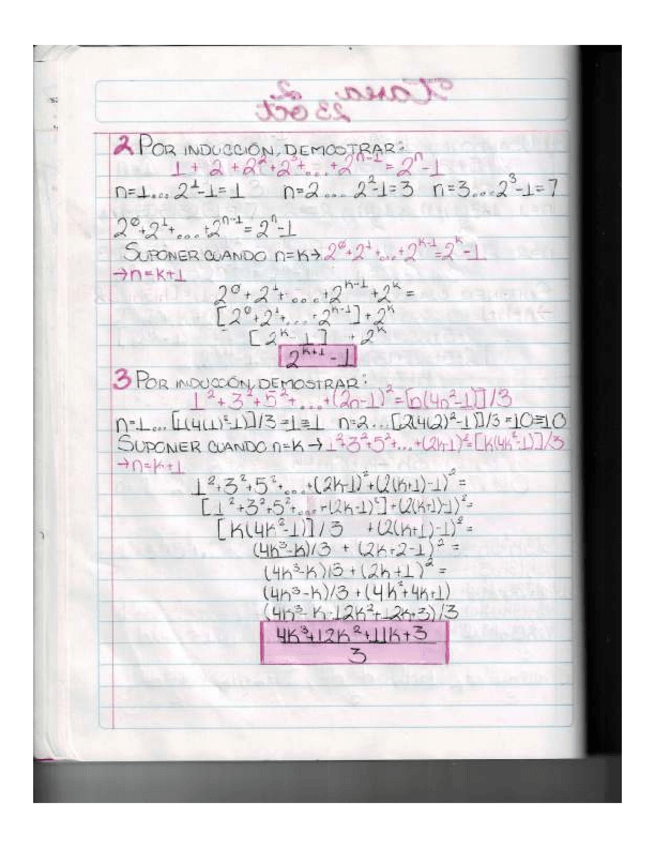 Tarea 2
23 oct
2 POR INDUCCIÓN, DEMOSTRAR:
1 + 2 + 2² + 2³ + ... + 2ⁿ⁻¹ = 2ⁿ - 1
n=1 ... 2¹-1=1 n=2 ... 2²-1=3 n=3 ... 2³-1=7
2⁰+2¹+...+2ⁿ⁻¹ = 2ⁿ-1
SUPONER CUANDO n=K → 2⁰+2¹+...+2ᴷ⁻¹=2ᴷ-1
→ n=K+1
2⁰+2¹+...+2ᴷ⁻¹+2ᴷ =
[2⁰+2¹+...+2ᴷ⁻¹]+2ᴷ
[2ᴷ-1] + 2ᴷ
2ᴷ⁺¹ - 1
3 POR INDUCCIÓN, DEMOSTRAR:
1²+3²+5²+...+(2n-1)² = [n(4n²-1)]/3
n=1 ... [1(4(1)²-1)]/3=1≡1 n=2 ... [2(4(2)²-1)]/3=10≡10
SUPONER CUANDO n=K → 1²3²+5²+...+(2K-1)²=[K(4K²-1)]/3
→ n=K+1
1²+3²+5²+...+(2K-1)²+(2(K+1)-1)² =
[1²+3²+5²+...+(2K-1)²]+(2(K+1)-1)²=
[K(4K²-1)]/3 +(2(K+1)-1)²=
(4K³-K)/3 + (2K+2-1)² =
(4K³-K)/3 + (2K+1)² =
(4K³-K)/3 + (4K²+4K+1)
(4K³-K+12K²+12K+3)/3
4K³+12K²+11K+3
3